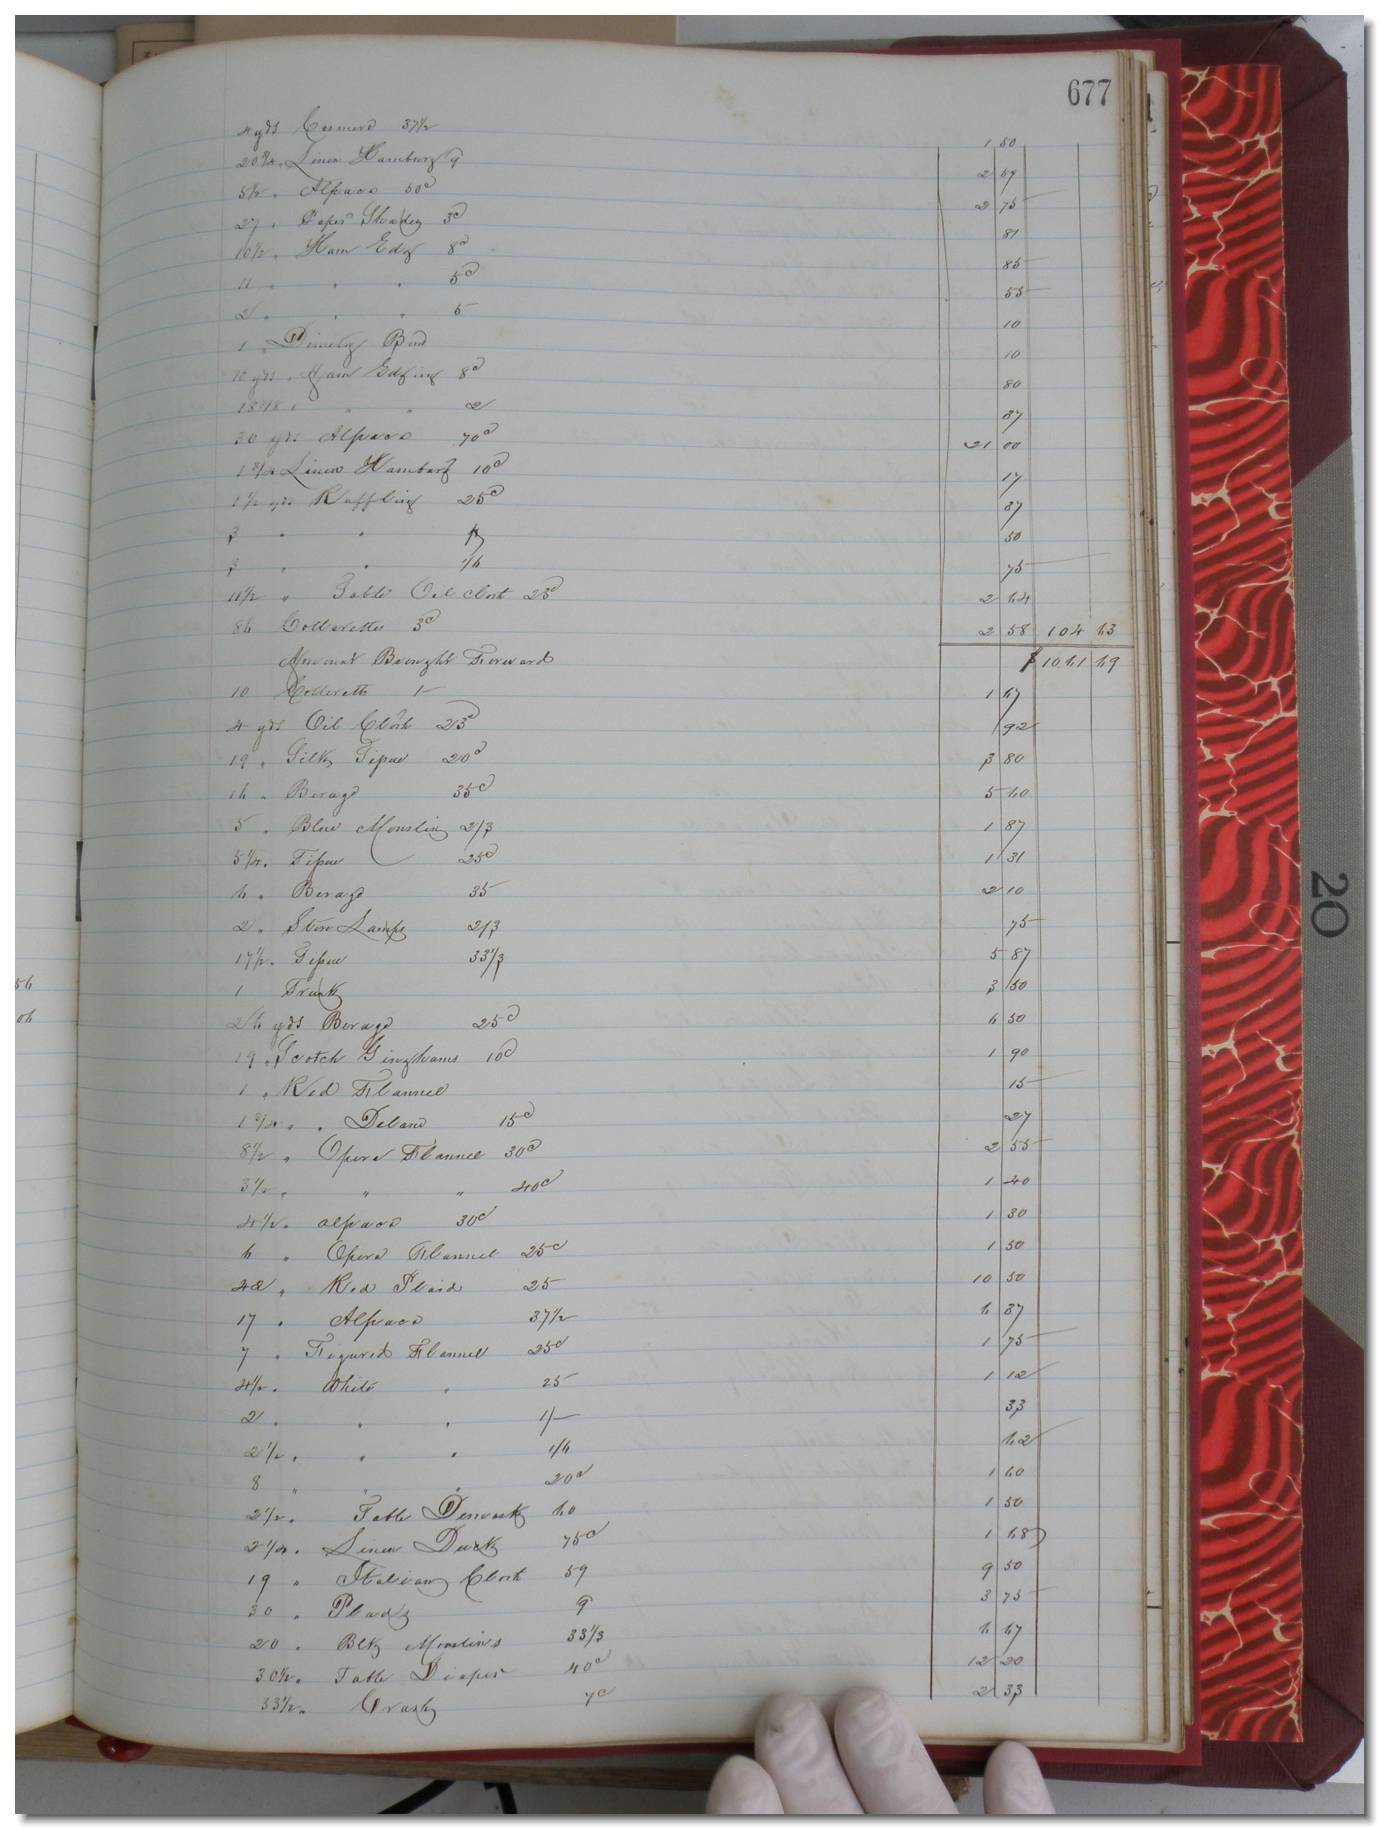 677
4 yds Casmere 37½ 1 50
20¾ " Linen Hamburg 9 2 59
5½ " Alpaca 50c 2 75
27 " Paper Shades 3c 81
10½ " Ham Edg 8c 85
11 " " " 5c 55
2 " " " 5 10
1 " Dimity Band 10
10 yds " Ham Edging 8c 80
" " " 2 37
30 yds Alpaca 70c 21 00
1¾ Linen Hamburg 10c 17
1½ yds Ruffling 25c 37
3 " " 50
3 " " 1/6 75
11½ " Table Oil Cloth 23c 2 64
86 Collerettes 3c 2 58 104 63
Amount Brought Forward $ 1061 69
10 Colleretts 1/- 1 67
4 yds Oil Cloth 23c 92
19 " Silk Tissue 20c 3 80
16 " Berage 35c 5 60
5 " Blue Mouslin 2/3 1 87
5¼ " Tissue 25c 1 31
6 " Berage 35 2 10
2 " Stove Lamps 2/3 75
17½ " Tissue 33⅓ 5 87
1 Trunk 3 50
26 yds Berage 25c 6 50
19 " Scotch Ginghams 10c 1 90
1 " Red Flannel 15
1¾ " " Delane 15c 27
8½ " Opera Flannel 30c 2 55
3½ " " " 40c 1 40
4½ " alpaca 30c 1 30
6 " Opera Flannel 25c 1 50
42 " Red Plaid 25 10 50
17 " Alpaca 37½ 6 37
7 " Figured Flannel 25c 1 75
4½ " White " 25 1 12
2 " " " 1/- 33
2½ " " " 1/6 62
8 " " " 20c 1 60
2½ " Table Demask 60 1 50
2¼ " Linen Duck 75c 1 68
19 " Italian Cloth 50 9 50
30 " Plads 3 75
20 " Blk Mouslins 33⅓ 6 67
30½ " Table Diaper 40c 12 20
33½ " Crash 7c 2 33
56
06
20